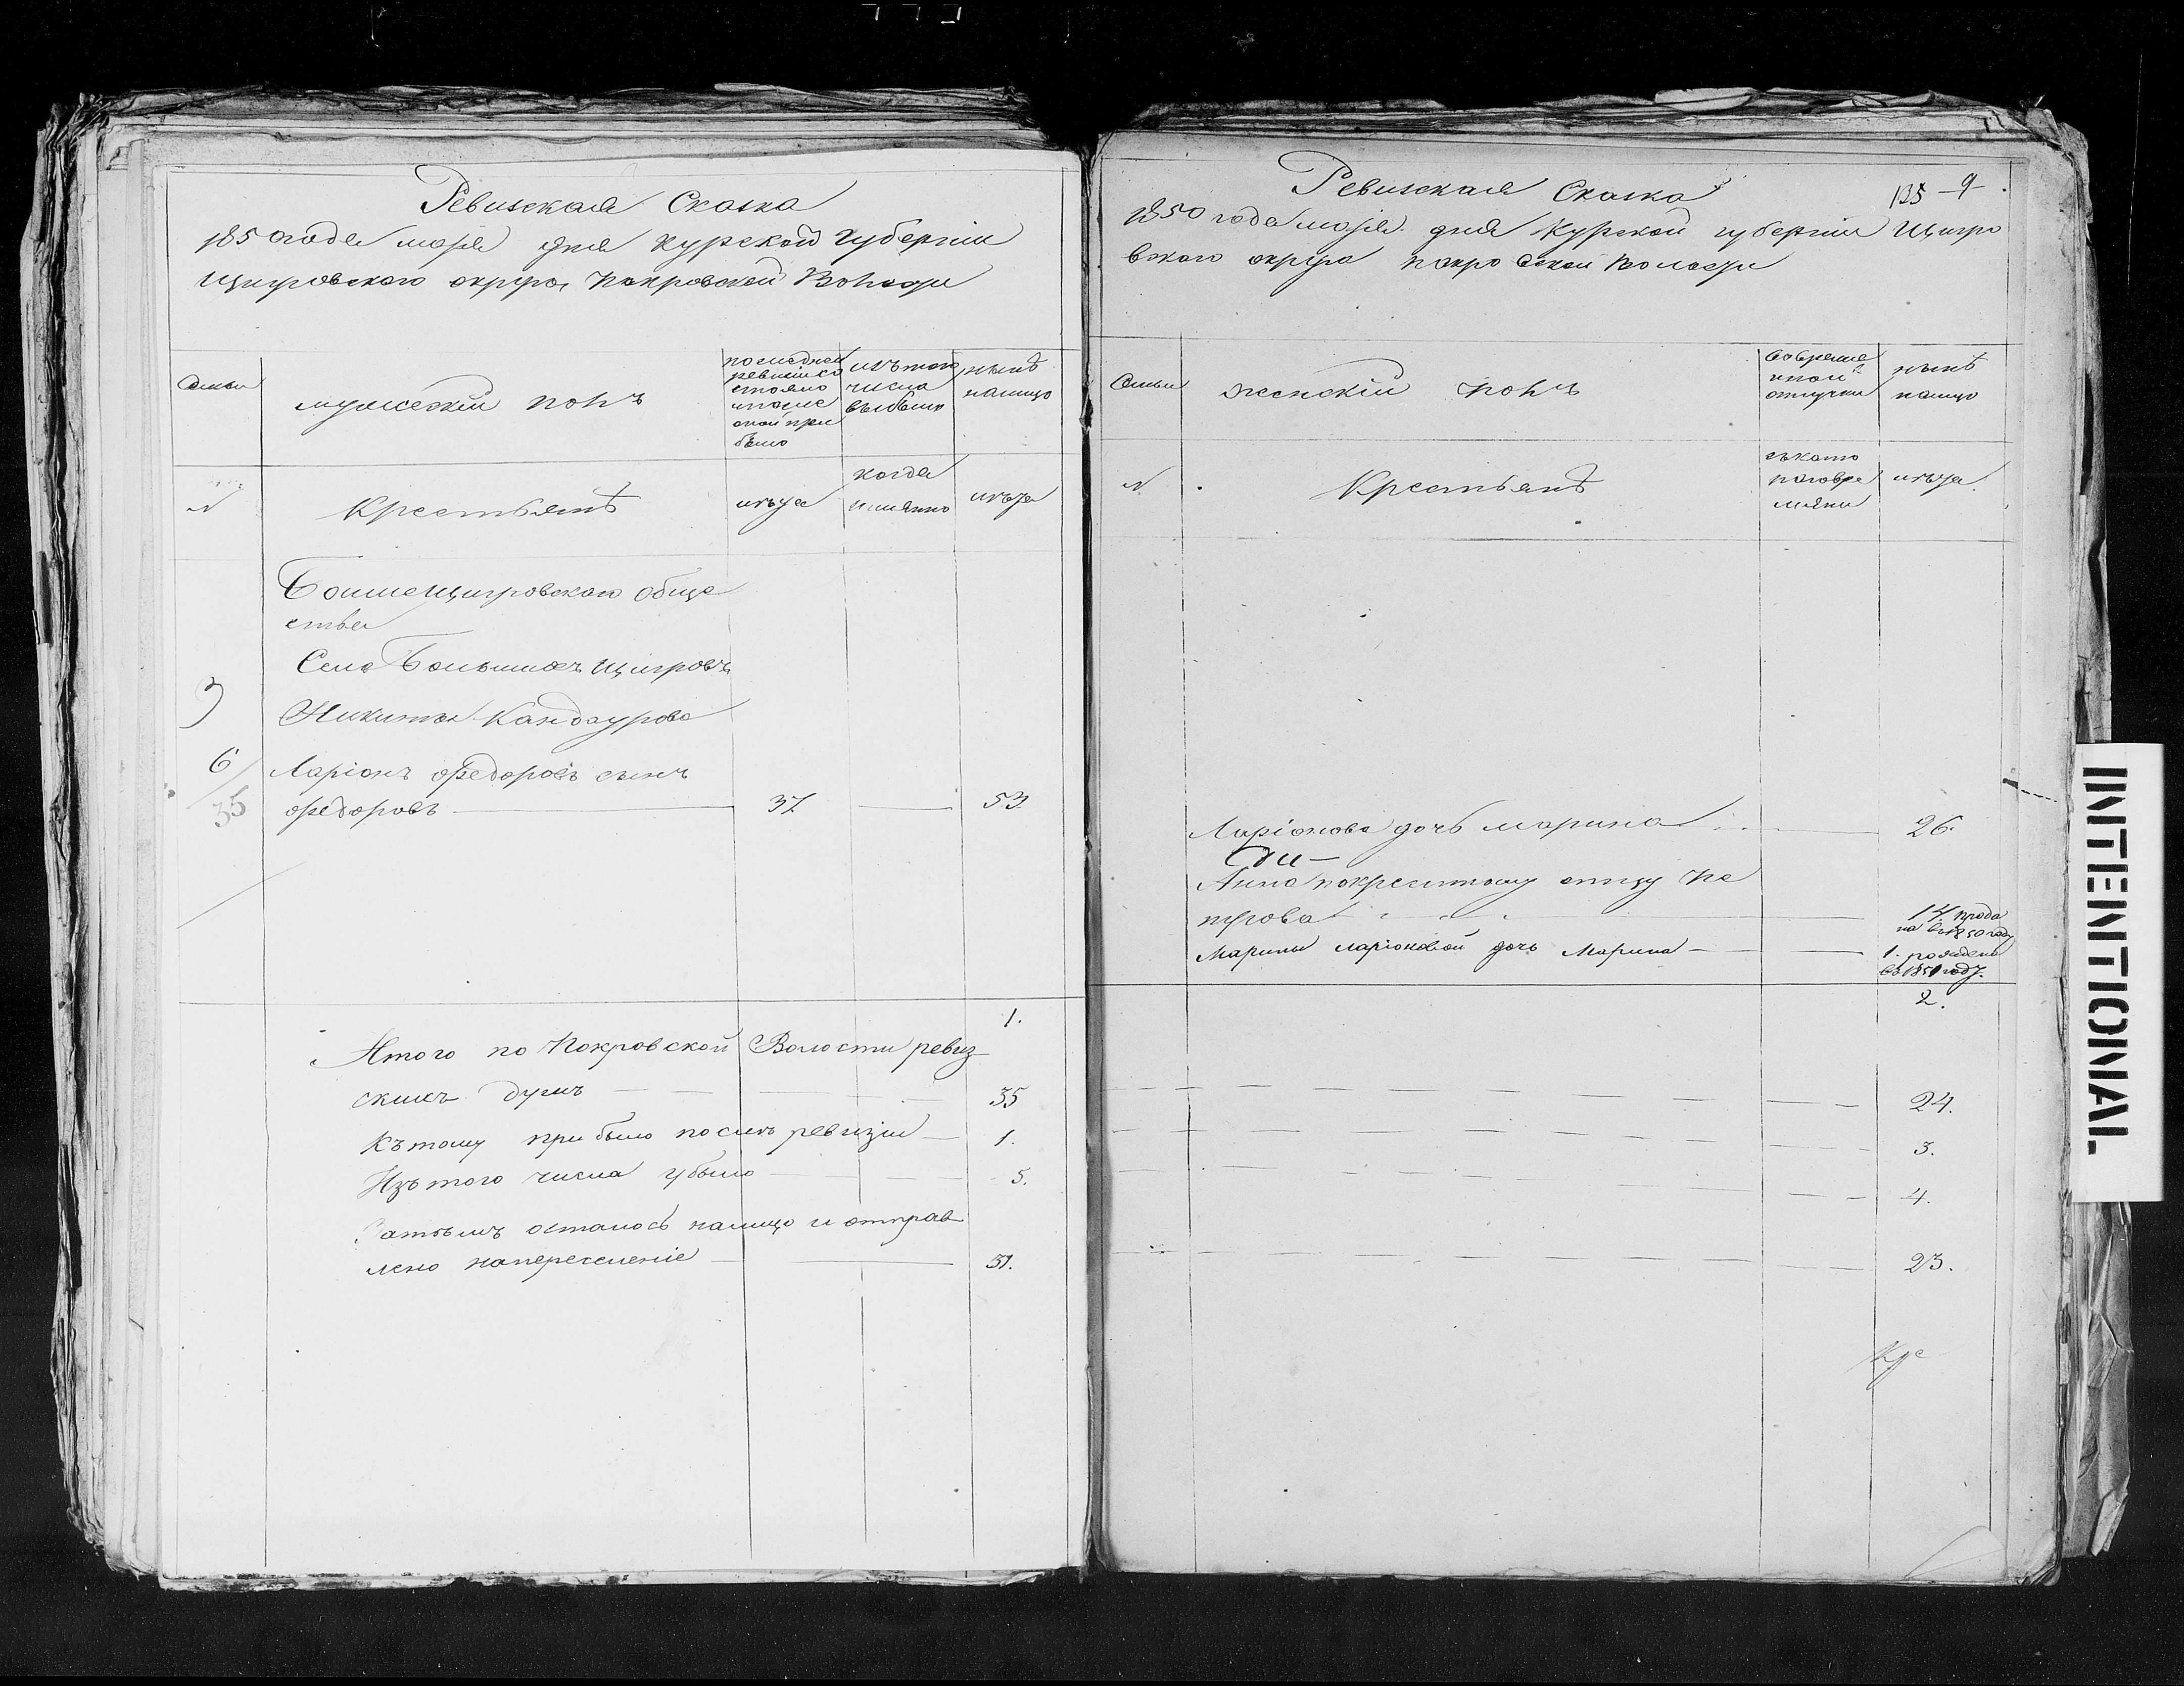 Ревизская Сказка
1850 года маїя дня Курской Губерніи
Щигровского округа, Покровской Волости
Семьи
мужескій полъ
последней
ревизіи со
стояло
и после
оной при
было
изъ того
числа
выбыло
ныне
налицо
№
Крестьянѣ
лѣта
когда
имянно
лѣта
Болше Щигровскаго обще
ства
Села Большихъ Щигровъ
9
Никиты Кандаурова
6
35
Ларіонъ Федоровъ сынъ
Федоровъ 37 53
1.
Итого по Покровской Волости ревиз
скихъ душъ 35
Къ тому прибыло после ревизіи 1.
Изъ того числа убыло 5.
Затѣмъ осталось налицо и отправ
лено на переселеніе 31.
Ревизская Сказка
135 9
1850 года маїя дня Курской губерніи Щигро
вскаго округа Покровской Волости
Семьи
женскій полъ
во времен
ной
отлучки
нынѣ
налицо
№
Крестьянѣ
съ какого
лѣта
Ларіонова дочь Марина 26.
Анна по крестному отцу Пе
трова 14 прода
на въ 1850 году
Марины Ларіоновой дочь Марина 1. рождена
въ 1850 году.
2.
24.
3.
4.
23.
INTENTIONAL